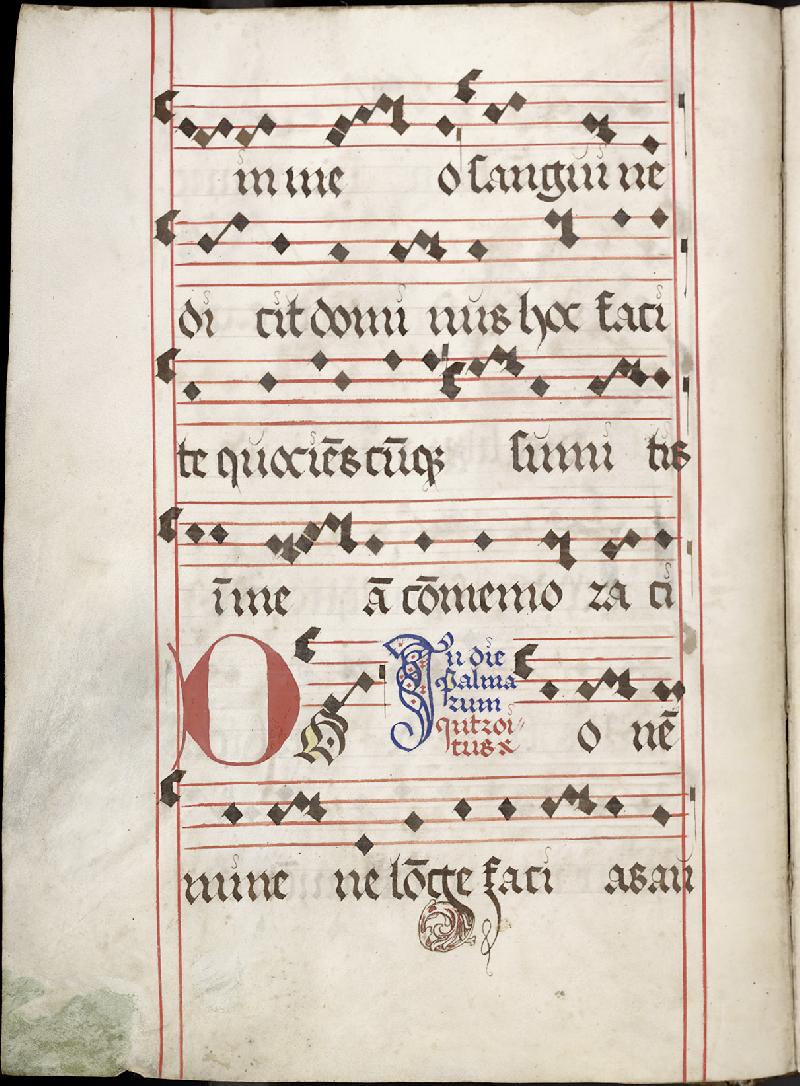 mine o sanguine
di cit domi nus hoc faci
te quociēscūq; sumi tis
ī me ā cōmemo ra ci
D o In die palma rum introi tus o nē
mine ne lōge faci as au